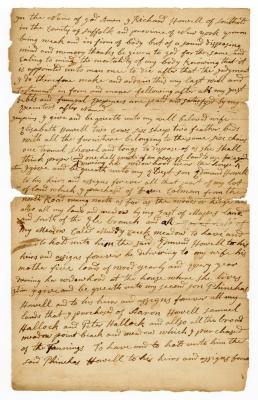 In the Name of god Amen I Richard Howell of Southold
in the County of Suffolk and province of New york yeoman
being weak and in firm of body but of a sound disposing
mind and memory thanks be given to god for the same and
calling to mind the mortality of my body knowing that it
is appointed unto man once to die after that the judgment
I do therefore make and ordain this my last will and
testament in form and maner following after all my just
debts and funeral expences are paid and satisfied by my
executors after named
I give and be queath unto my well beloved wife
Elizabeth Howell two cows six sheep two feather beds
with all the furniture belonging to the same one
one trowel shovel and tongs to dispose of as she shall
think proper and one half part of the
during her widow
I give and be queath unto my son Edmund Howell
to his heirs and assigns forever all that part of my lot
of land which I purchased of Colman from the
north Road runing north as far as the woods or
also all my lands and meadow by east of Mayers Land
and south of the sd branch and all
my Meadow Cald muddy creek meadow to have and
to hold unto him the said Edmund Howell to his
heirs and assigns forever he delivering to my wife his
mother five loads of wood yearly and every year
during her widowhood at the house where she lives
I give and be queath unto my second son Phinehas
Howell and to his heirs and assigns forever all my
lands that I purchased of Aaron Howell Samuel
Hallock and Peter Hallock and allso all the broad
meadow point beach and meadow which I purchased
of the fannings To have and to hold unto him the
said Phinehas Howell to his heirs and assigns forever